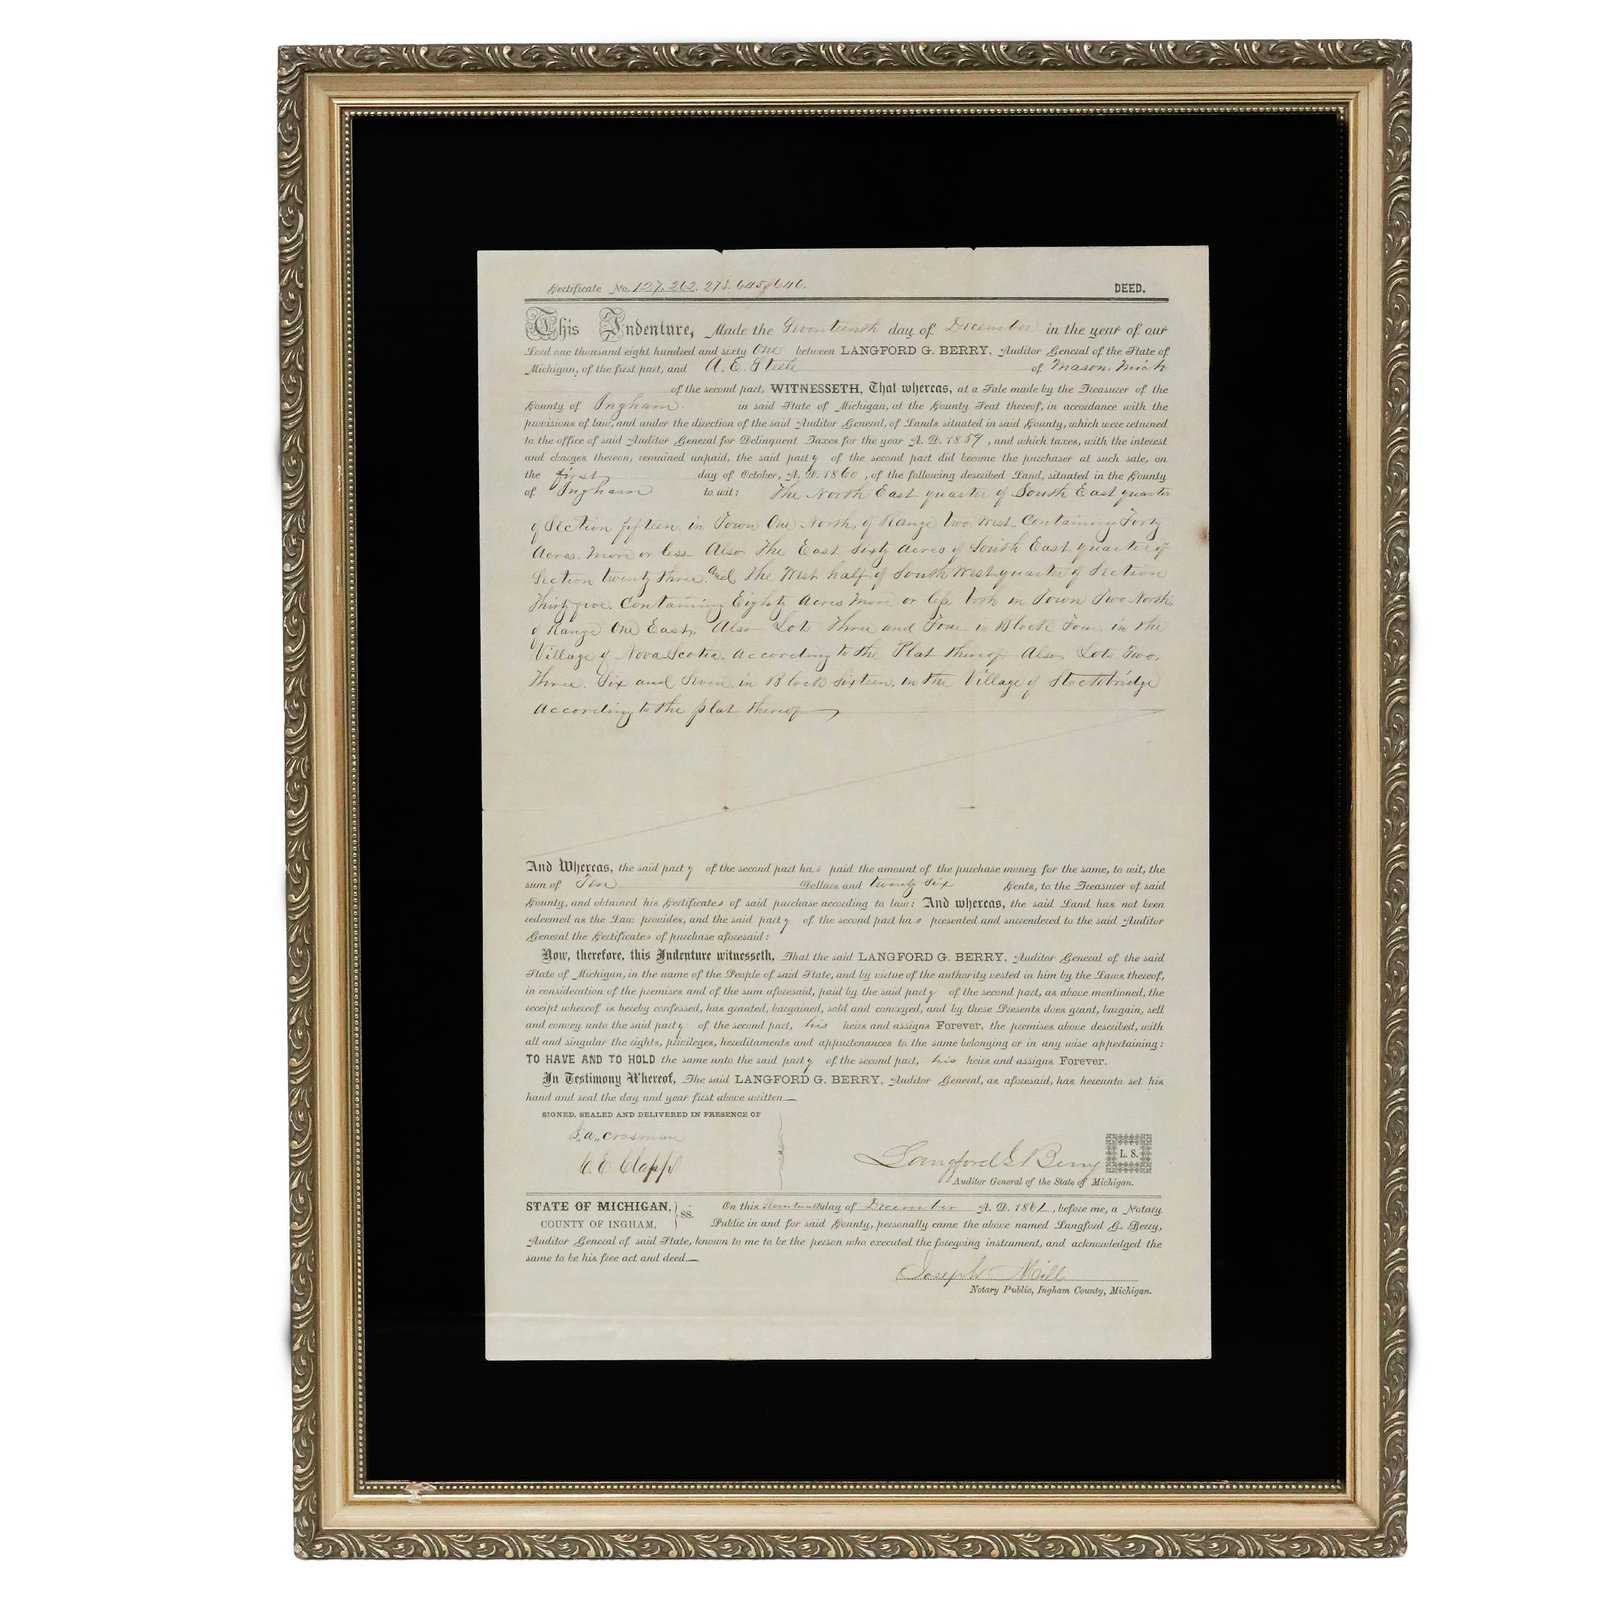 Certificate No. 127, 262, 278, 645, 646. DEED.
This Indenture, Made the Seventeenth day of December in the year of our
Lord one thousand eight hundred and sixty One between LANGFORD G. BERRY, Auditor General of the State of
Michigan, of the first part, and A. E. Steele of Mason. Mich
of the second part, WITNESSETH, That whereas, at a Sale made by the Treasurer of the
County of Ingham. in said State of Michigan, at the County Seat thereof, in accordance with the
provisions of law, and under the direction of the said Auditor General, of Lands situated in said County, which were returned
to the office of said Auditor General for Delinquent Taxes for the year A. D. 1859, and which taxes, with the interest
and charges thereon, remained unpaid, the said party of the second part did become the purchaser at such sale, on
the first day of October, A. D. 1860, of the following described Land, situated in the County
of Ingham to wit: The North East quarter of South East quarter
of Section fifteen in Town One North, of Range two West, Containing Forty
Acres. More or less Also The East Sixty Acres of South East quarter of
Section twenty three. And The West half of South West quarter of Section
Thirty five. Containing Eighty Acres More or less, both in Town Two North,
of Range One East, Also Lots Three and Four, in Block Four. in the
Village of Nova Scotia. According to the Plat thereof Also Lots Two,
Three. Six and Seven, in Block Sixteen, in the Village of Stockbridge
According to the plat thereof
And Whereas, the said party of the second part has paid the amount of the purchase money for the same, to wit, the
sum of Ten Dollars and twenty six Cents, to the Treasurer of said
County, and obtained his Certificates of said purchase according to law: And whereas, the said Land has not been
redeemed as the Law provides, and the said party of the second part has presented and surrendered to the said Auditor
General the Certificates of purchase aforesaid:
Now, therefore, this Indenture witnesseth, That the said LANGFORD G. BERRY, Auditor General of the said
State of Michigan, in the name of the People of said State, and by virtue of the authority vested in him by the Laws thereof,
in consideration of the premises and of the sum aforesaid, paid by the said party of the second part, as above mentioned, the
receipt whereof is hereby confessed, has granted, bargained, sold and conveyed, and by these Presents does grant, bargain, sell
and convey unto the said party of the second part, his heirs and assigns Forever, the premises above described, with
all and singular the rights, privileges, hereditaments and appurtenances to the same belonging or in any wise appertaining:
TO HAVE AND TO HOLD the same unto the said party of the second part, his heirs and assigns Forever.
In Testimony Whereof, The said LANGFORD G. BERRY, Auditor General, as aforesaid, has hereunto set his
hand and seal the day and year first above written.
SIGNED, SEALED AND DELIVERED IN PRESENCE OF
S. A. Crosman
C. E. Clapp
Langford G. Berry L. S.
Auditor General of the State of Michigan.
STATE OF MICHIGAN, COUNTY OF INGHAM, } ss. On this Seventeenth day of December A. D. 1861, before me, a Notary
Public in and for said County, personally came the above named Langford G. Berry,
Auditor General of said State, known to me to be the person who executed the foregoing instrument, and acknowledged the
same to be his free act and deed.
Joseph Mill
Notary Public, Ingham County, Michigan.